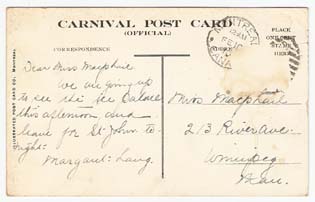 CARNIVAL POST CARD
(OFFICIAL)
CORRESPONDENCE
PLACE
STAMP
HERE
MONTREAL
CANADA
ILLUSTRATED POST CARD CO. MONTREAL
Dear Miss Macphail
We are going up
to see the Ice Palace
this afternoon and
leave for St John to-
night.
Margaret Laing
Miss Macphail
213 River Ave.
Winnipeg
Man.